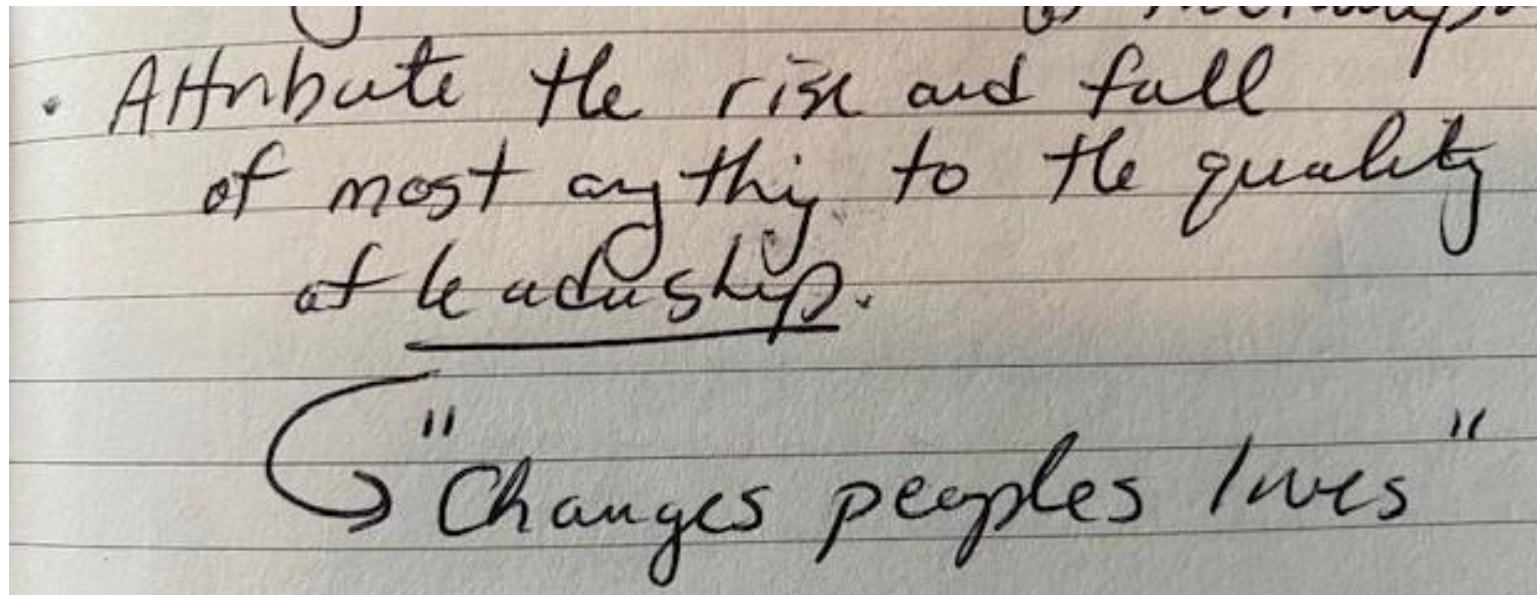 • Attribute the rise and fall
of most any thing to the quality
of leadership.
"Changes peoples lives"